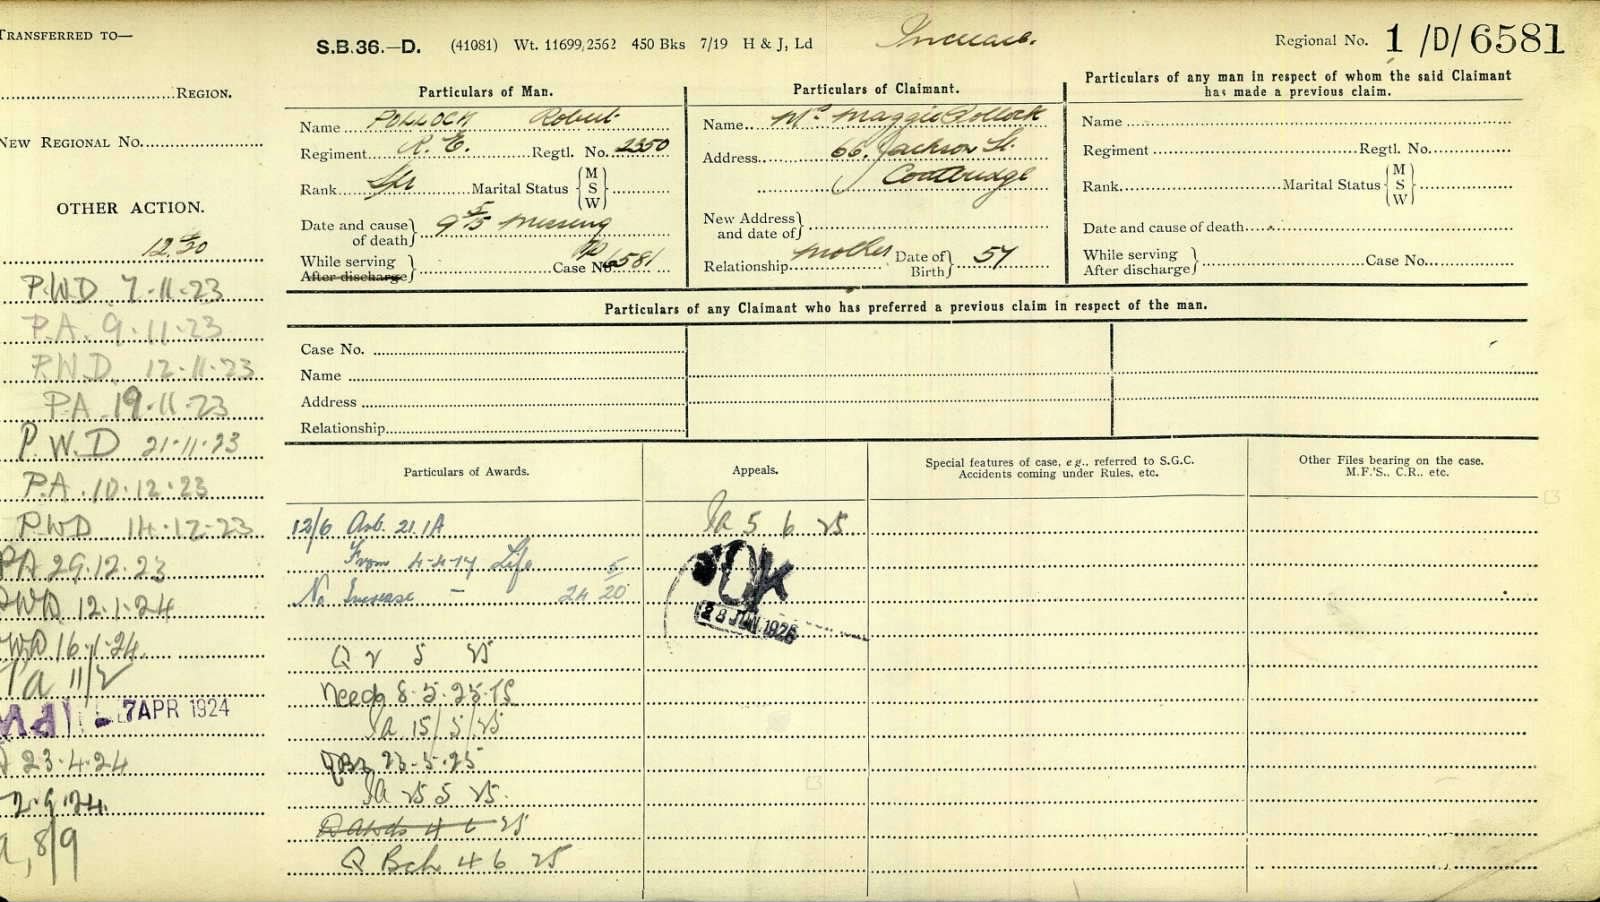 TRANSFERRED TO—
REGION.
NEW REGIONAL NO.
OTHER ACTION.
12 5/20
P.W.D 7-11-23
P.A. 9-11-23
P.W.D. 12-11-23
P.A 19-11-23
P.W.D 21-11-23
P.A. 10-12-23
PWD 14-12-23
PA 29.12.23
PWD 12.1.24
PWD 16-1-24
Pa 11/2
7 APR 1924
23.4.24
2.9.24.
8/9
S.B.36.—D. (41081) Wt. 11699, 2562 450 Bks 7/19 H & J, Ld
Increase.
Regional No. 1 /D/ 6581
Particulars of Man.
Name POLLOCK Robert
Regiment R.E. Regtl. No. 2350
Rank Spr Marital Status { M S W }
Date and cause of death } 9 5/15 missing
While serving After discharge } Case No. 6581
Particulars of Claimant.
Name Mrs Maggie Pollock
Address 66, Jackson St.
Coatbridge
New Address and date of }
Relationship mother Date of Birth } 57
Particulars of any man in respect of whom the said Claimant
has made a previous claim.
Name
Regiment Regtl. No.
Rank Marital Status { M S W }
Date and cause of death
While serving After discharge } Case No.
Particulars of any Claimant who has preferred a previous claim in respect of the man.
Case No.
Name
Address
Relationship
Particulars of Awards.
12/6 Art. 21.1A
From 4-4-17 Life
No Increase — 24 5/20
Q 2 5 25
8.5.25
15/5/25
23.5.25
25 5 25.
4 6 25
Q Bch 4 6 25
Appeals.
5 6 25
OK
28 JUN 1926
Special features of case, e.g., referred to S.G.C.
Accidents coming under Rules, etc.
Other Files bearing on the case.
M.F.'S., C.R., etc.